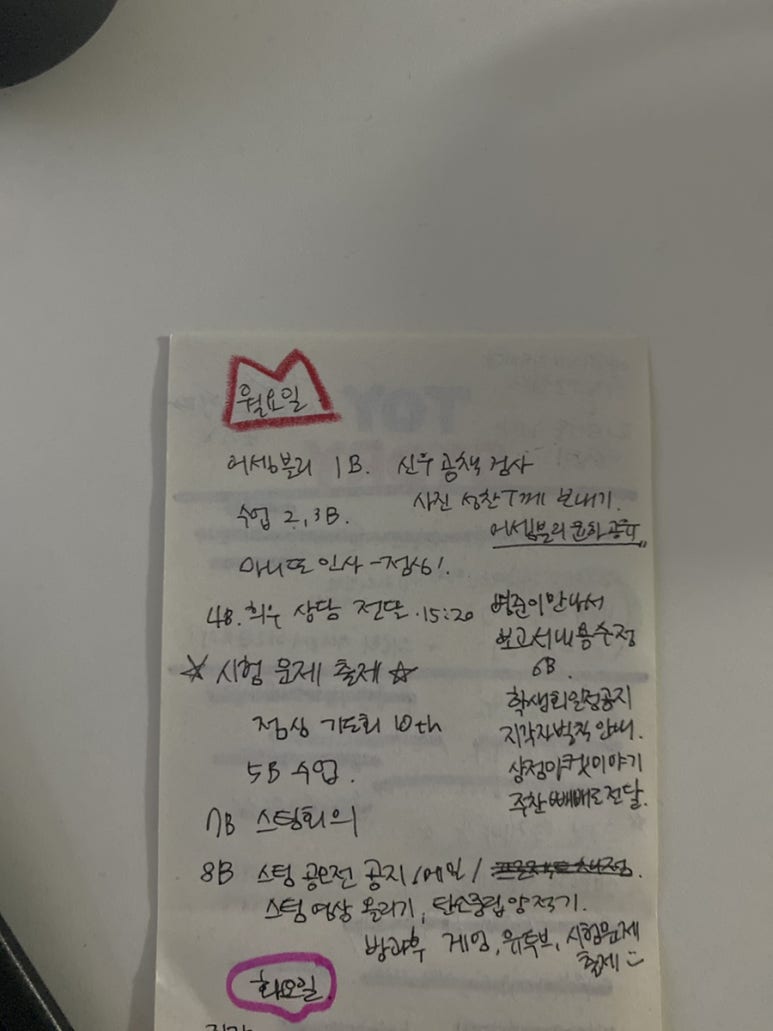 월요일
어셈블리 1B. 신우 공책 검사
사진 성찬T께 보내기.
수업 2, 3B.
어셈블리 문화 공유
마니또 인사 - 점심!
4B. 희우 상담 전달. 15:20
병준이 만나서
보고서 내용 수정
☆ 시험 문제 출제 ☆
6B.
학생회 일정 공지
점심 기도회 10th
지각자 벌칙 안내.
5B 수업.
이야기
주찬 빼빼로 전달.
7B 스팀회의
8B 스팀 공모전 공지 / 메일 /
스팀 영상 올리기, 탄소중립 양적기.
방과후 게임, 유튜브, 시험문제
출제
화요일